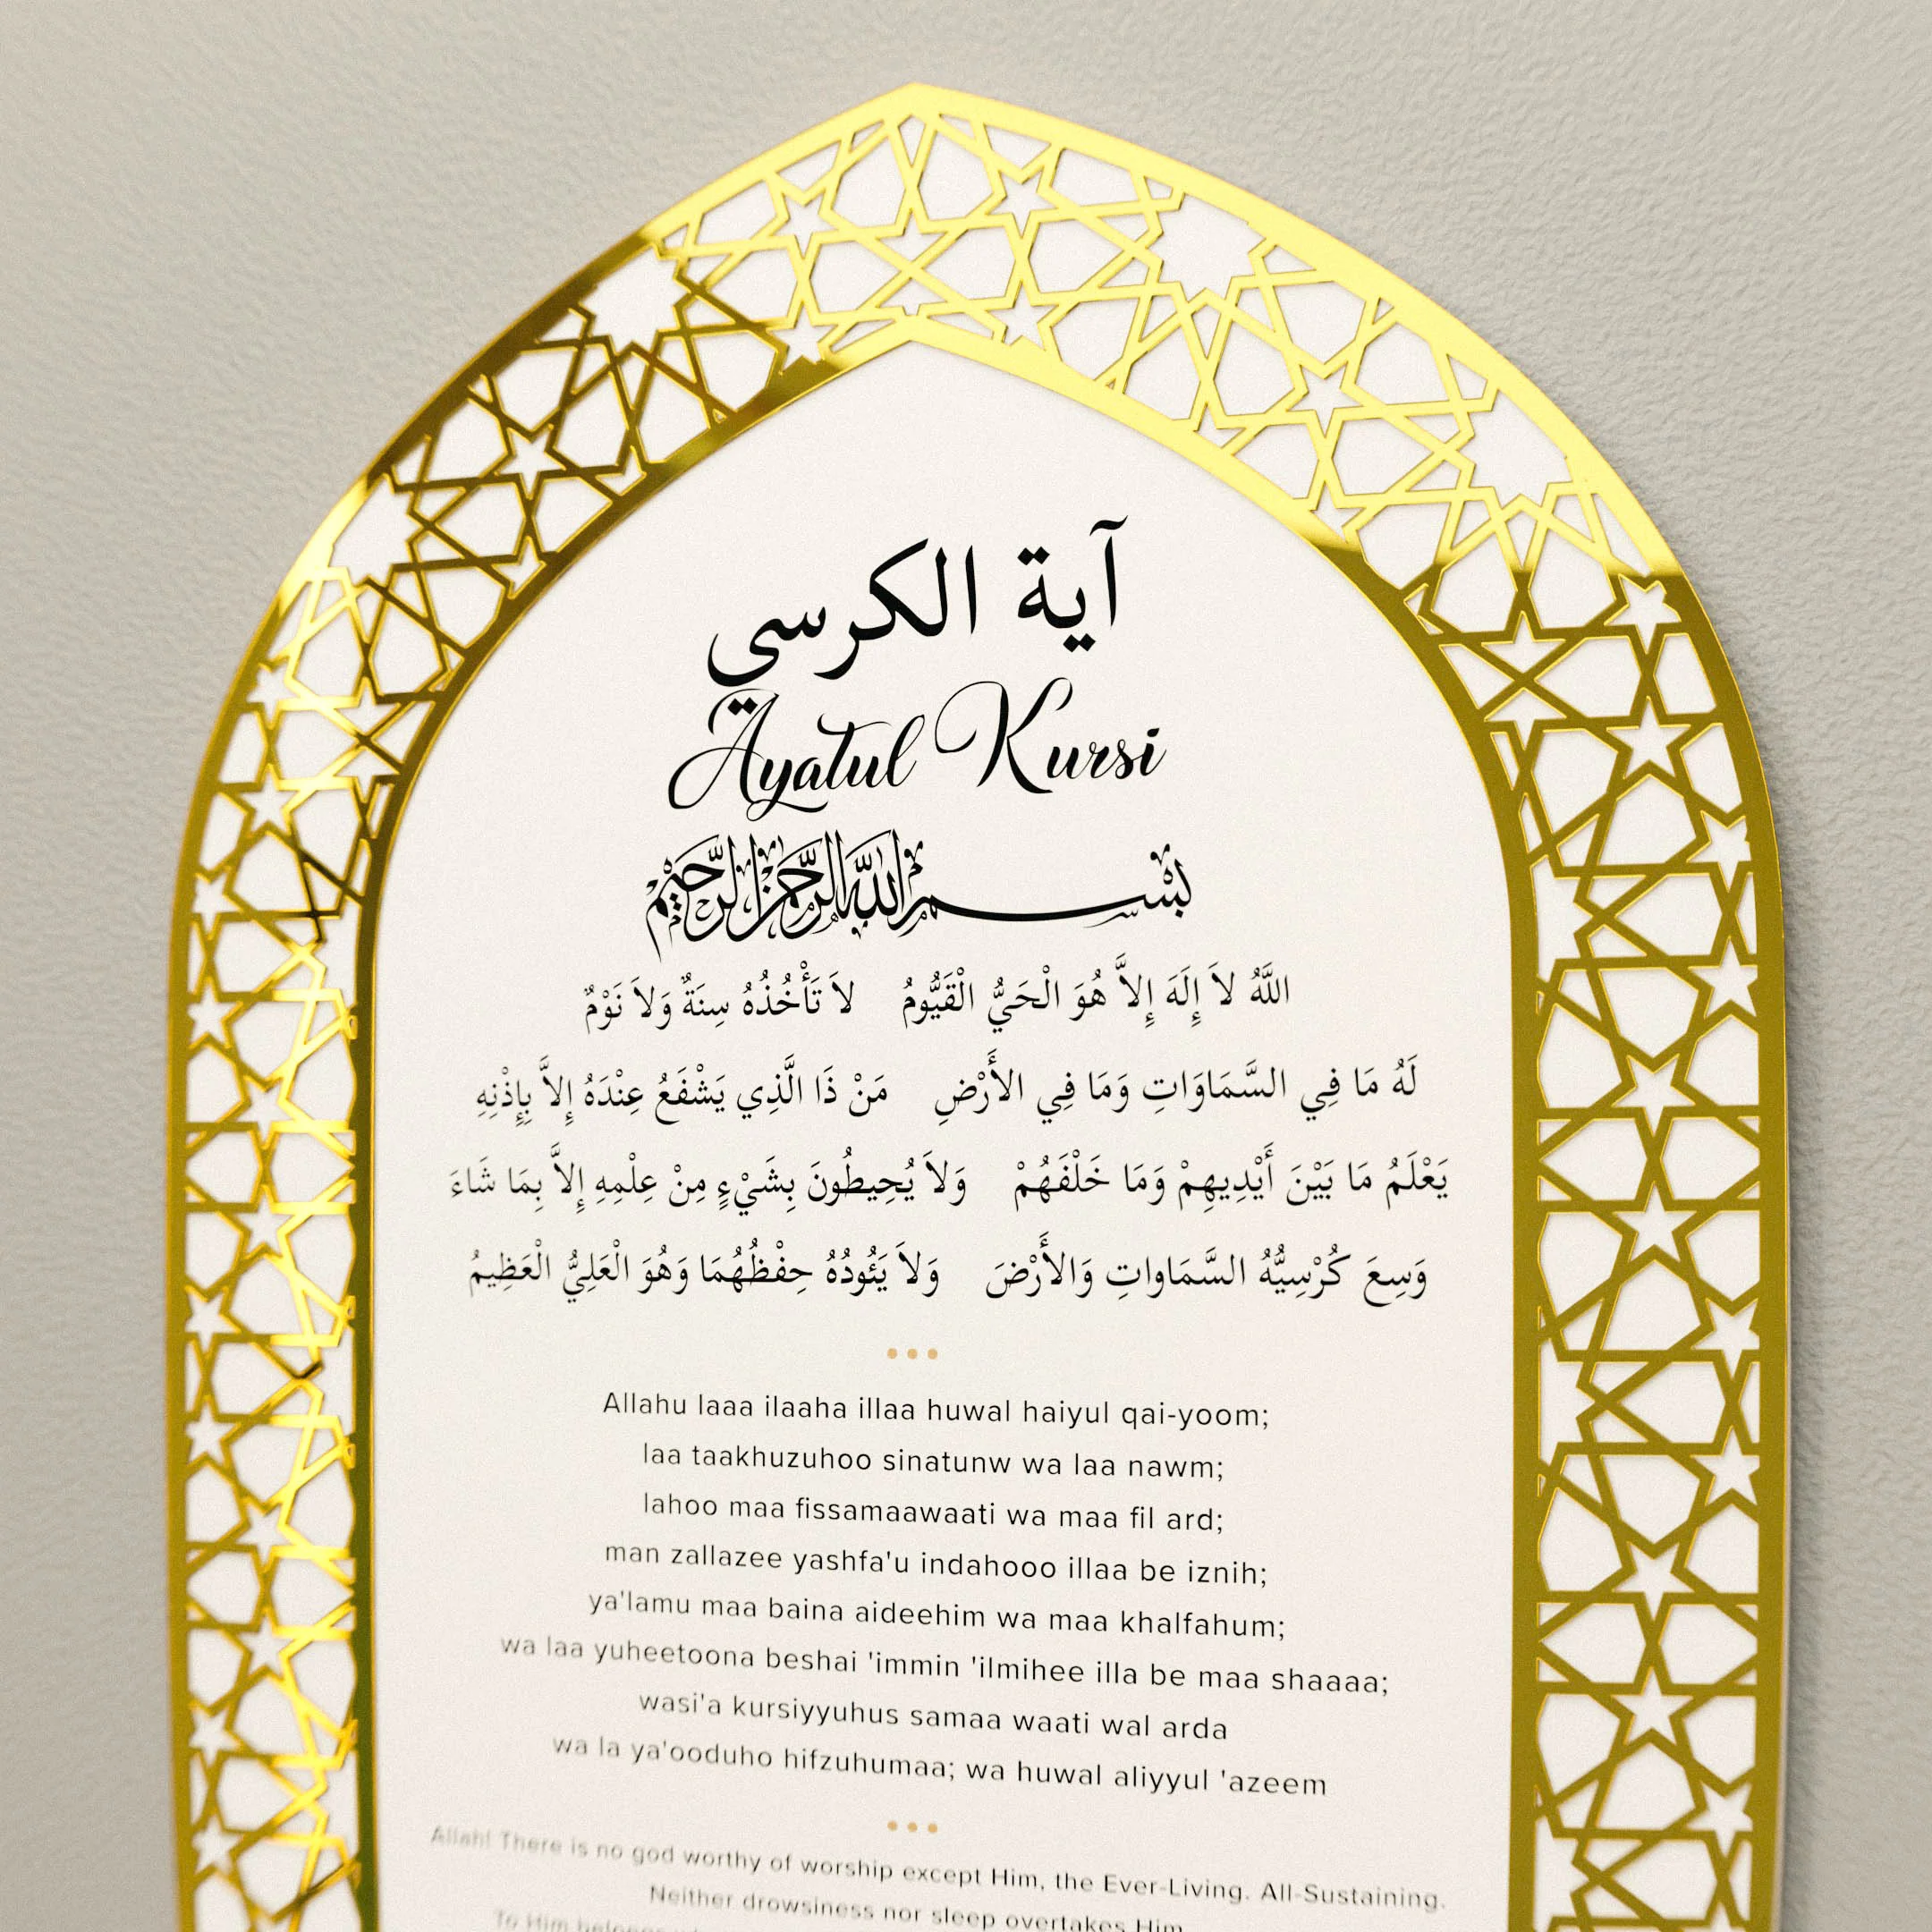 آية الكرسي
Ayatul Kursi
بسم الله الرحمن الرحيم
اللَّهُ لاَ إِلَهَ إِلاَّ هُوَ الْحَيُّ الْقَيُّومُ لاَ تَأْخُذُهُ سِنَةٌ وَلاَ نَوْمٌ
لَهُ مَا فِي السَّمَاوَاتِ وَمَا فِي الأَرْضِ مَنْ ذَا الَّذِي يَشْفَعُ عِنْدَهُ إِلاَّ بِإِذْنِهِ
يَعْلَمُ مَا بَيْنَ أَيْدِيهِمْ وَمَا خَلْفَهُمْ وَلاَ يُحِيطُونَ بِشَيْءٍ مِنْ عِلْمِهِ إِلاَّ بِمَا شَاءَ
وَسِعَ كُرْسِيُّهُ السَّمَاواتِ وَالأَرْضَ وَلاَ يَئُودُهُ حِفْظُهُمَا وَهُوَ الْعَلِيُّ الْعَظِيمُ
Allahu laaa ilaaha illaa huwal haiyul qai-yoom;
laa taakhuzuhoo sinatunw wa laa nawm;
lahoo maa fissamaawaati wa maa fil ard;
man zallazee yashfa'u indahooo illaa be iznih;
ya'lamu maa baina aideehim wa maa khalfahum;
wa laa yuheetoona beshai 'immin 'ilmihee illa be maa shaaaa;
wasi'a kursiyyuhus samaa waati wal arda
wa la ya'ooduho hifzuhumaa; wa huwal aliyyul 'azeem
Allah! There is no god worthy of worship except Him, the Ever-Living. All-Sustaining.
Neither drowsiness nor sleep overtakes Him.
To Him belongs